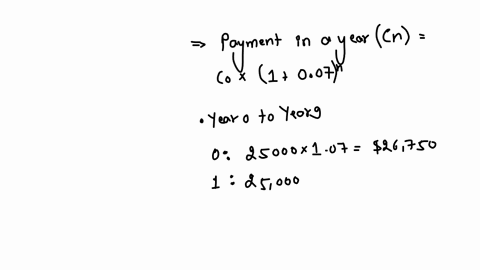 ⇒ Payment in a year (Cn) =
Co × (1 + 0.07)^n
• Year 0 to Year 9
0: 25000 × 1.07 = $26,750
1 : 25,000